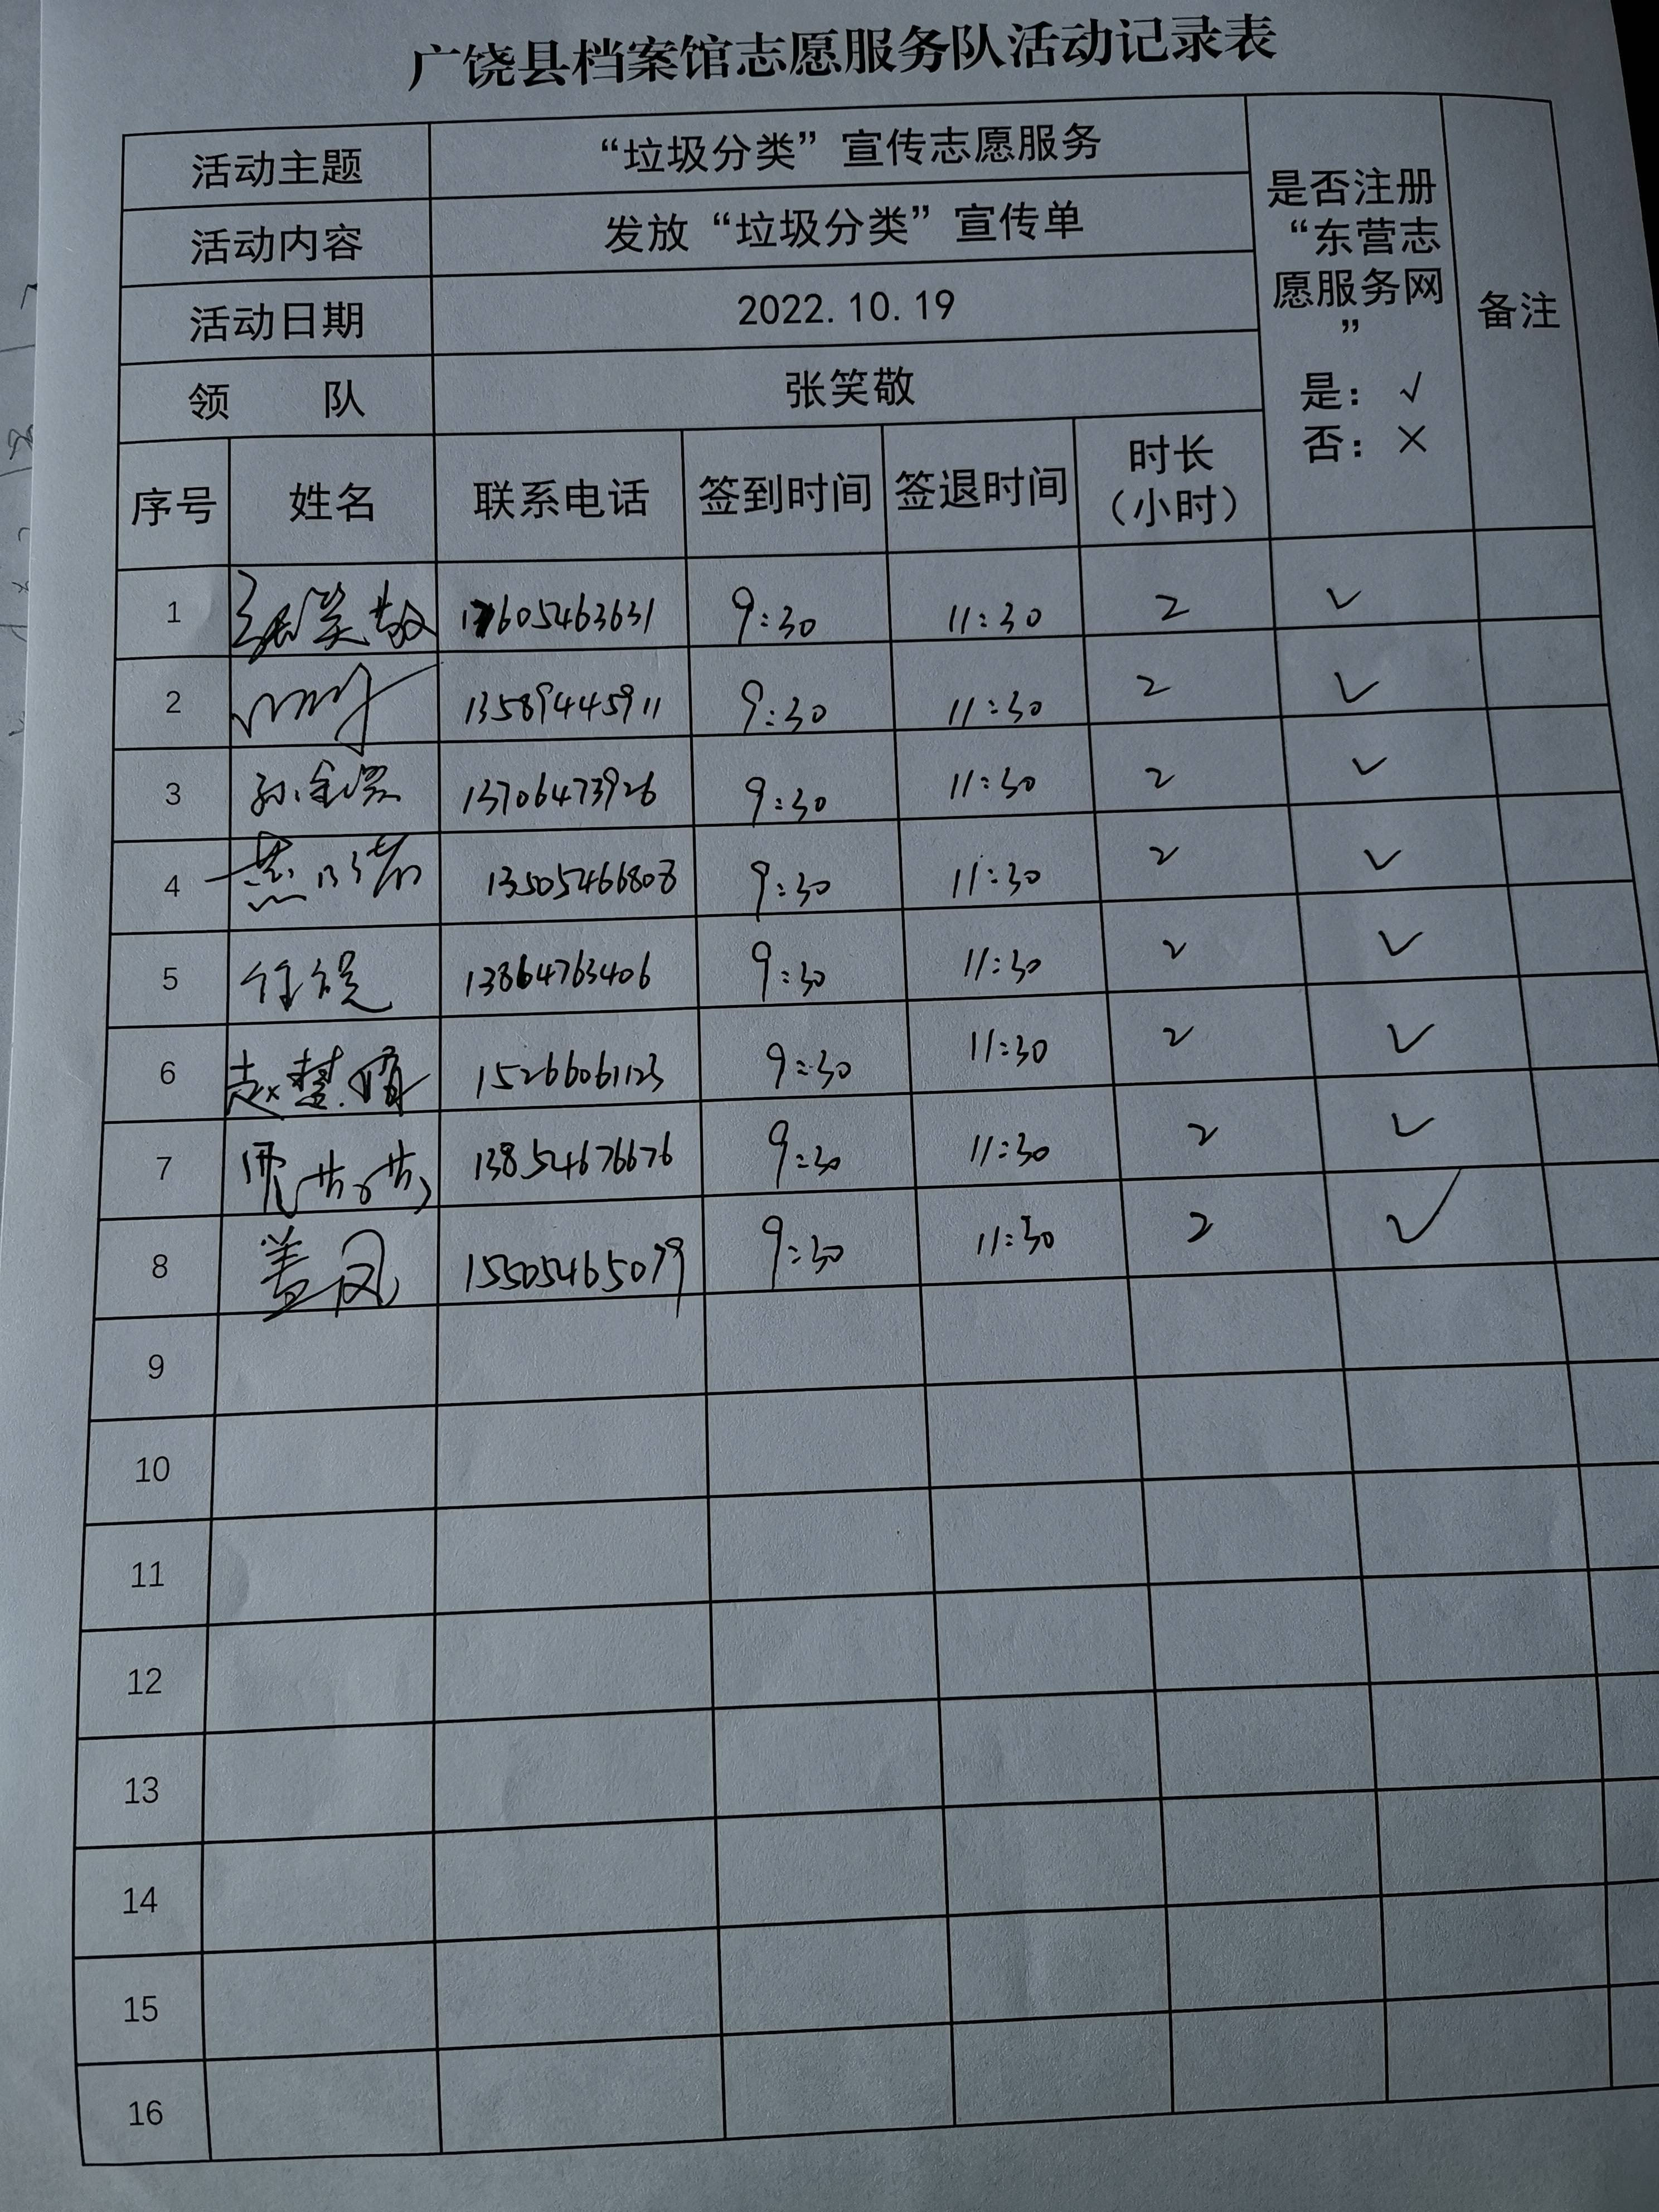 广饶县档案馆志愿服务队活动记录表
活动主题 “垃圾分类”宣传志愿服务
活动内容 发放“垃圾分类”宣传单
活动日期 2022.10.19
领 队 张笑敬
是否注册
“东营志
愿服务网
”
是：√
否：×
备注
序号 姓名 联系电话 签到时间 签退时间 时长
（小时）
1 张笑敬 13605463631 9:30 11:30 2 ✓
2 13589445911 9:30 11:30 2 ✓
3 孙 13706473926 9:30 11:30 2 ✓
4 燕 13505466808 9:30 11:30 2 ✓
5 任 13864763406 9:30 11:30 2 ✓
6 赵慧 15266061123 9:30 11:30 2 ✓
7 贾 13854676676 9:30 11:30 2 ✓
8 盖凤 15505465079 9:30 11:30 2 ✓
9
10
11
12
13
14
15
16